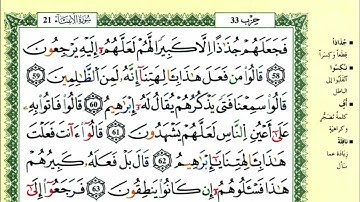 21 سُورَةُ الأَنبِيَاءِ
حِزْب 33
فَجَعَلَهُمْ جُذَٰذًا إِلَّا كَبِيرًا لَّهُمْ لَعَلَّهُمْ إِلَيْهِ يَرْجِعُونَ
58 قَالُوا۟ مَن فَعَلَ هَٰذَا بِـَٔالِهَتِنَآ إِنَّهُۥ لَمِنَ ٱلظَّٰلِمِينَ 59
قَالُوا۟ سَمِعْنَا فَتًى يَذْكُرُهُمْ يُقَالُ لَهُۥٓ إِبْرَٰهِيمُ 60 قَالُوا۟ فَأْتُوا۟ بِهِۦ
عَلَىٰٓ أَعْيُنِ ٱلنَّاسِ لَعَلَّهُمْ يَشْهَدُونَ 61 قَالُوٓا۟ ءَأَنتَ فَعَلْتَ
هَٰذَا بِـَٔالِهَتِنَا يَٰٓإِبْرَٰهِيمُ 62 قَالَ بَلْ فَعَلَهُۥ كَبِيرُهُمْ
هَٰذَا فَسْـَٔلُوهُمْ إِن كَانُوا۟ يَنطِقُونَ 63 فَرَجَعُوٓا۟ إِلَىٰٓ
جُذَاذًا
قِطَعًا وكِسَرًا
نُكِسُوا
الباطل
أُفٍّ
كلمةُ تَضَجُّر
وكراهية
نافلةً
زيادة عما
سأل